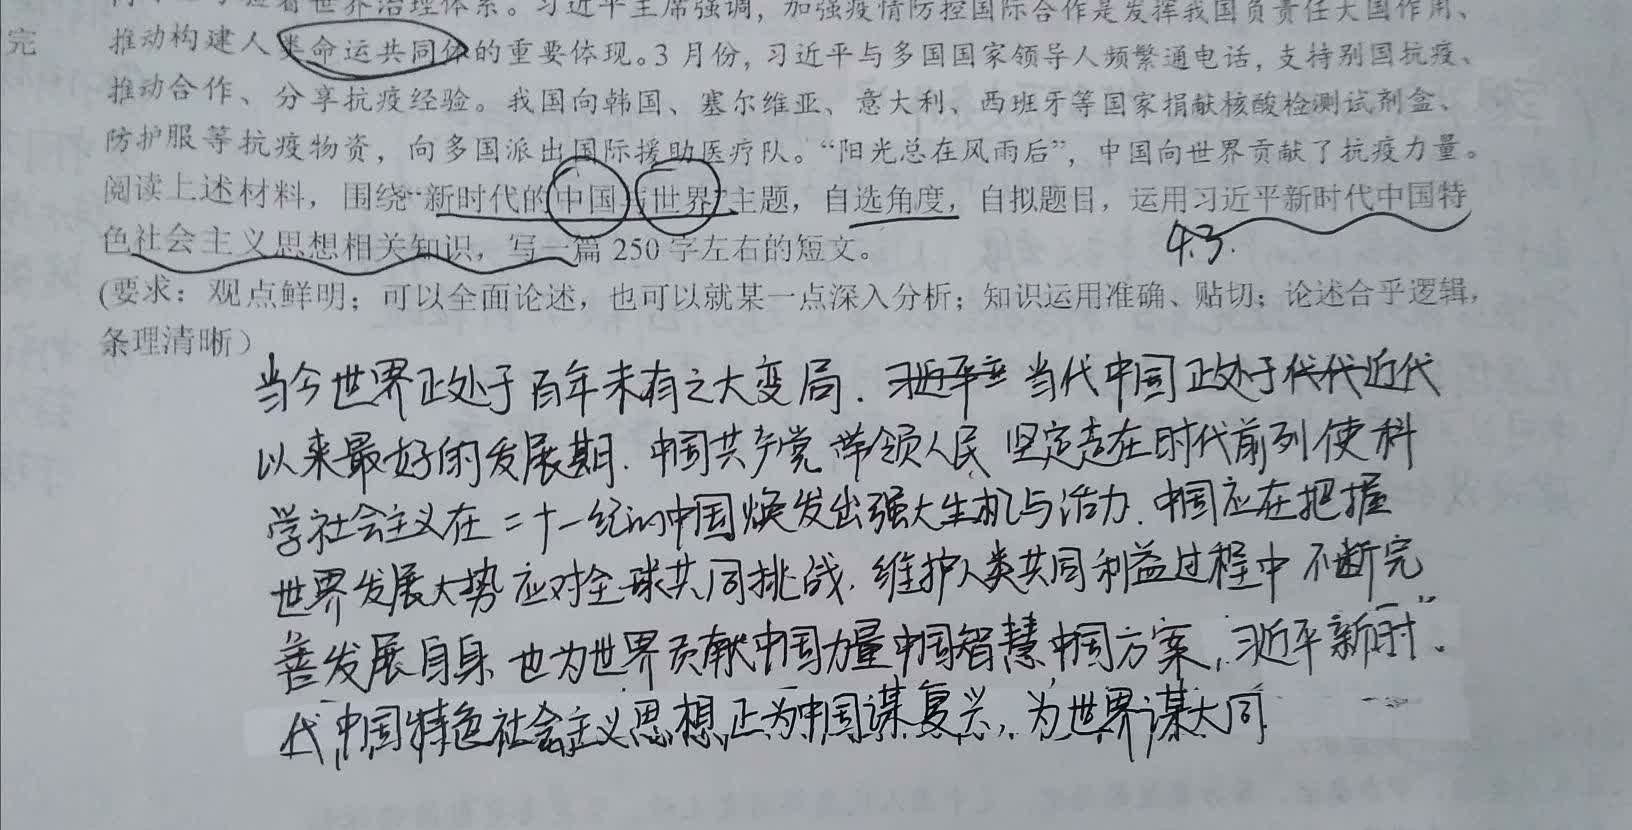 着世界治理体系。习近平主席强调，加强疫情防控国际合作是发挥我国负责任大国作用、
完 推动构建人类命运共同体的重要体现。3 月份，习近平与多国国家领导人频繁通电话，支持别国抗疫、
推动合作、分享抗疫经验。我国向韩国、塞尔维亚、意大利、西班牙等国家捐献核酸检测试剂盒、
防护服等抗疫物资，向多国派出国际援助医疗队。“阳光总在风雨后”，中国向世界贡献了抗疫力量。
阅读上述材料，围绕“新时代的中国与世界”主题，自选角度，自拟题目，运用习近平新时代中国特
色社会主义思想相关知识，写一篇 250 字左右的短文。 4.3.
(要求：观点鲜明；可以全面论述，也可以就某一点深入分析；知识运用准确、贴切；论述合乎逻辑，
条理清晰）
当今世界正处于百年未有之大变局．习近平 当代中国正处于代代近代
以来最好的发展期．中国共产党带领人民坚定走在时代前列使科
学社会主义在二十一纪的中国焕发出强大生机与活力．中国应在把握
世界发展大势应对全球共同挑战．维护人类共同利益过程中不断完
善发展自身 也为世界贡献中国力量中国智慧中国方案，习近平新时
代中国特色社会主义思想正为中国谋复兴，为世界谋大同